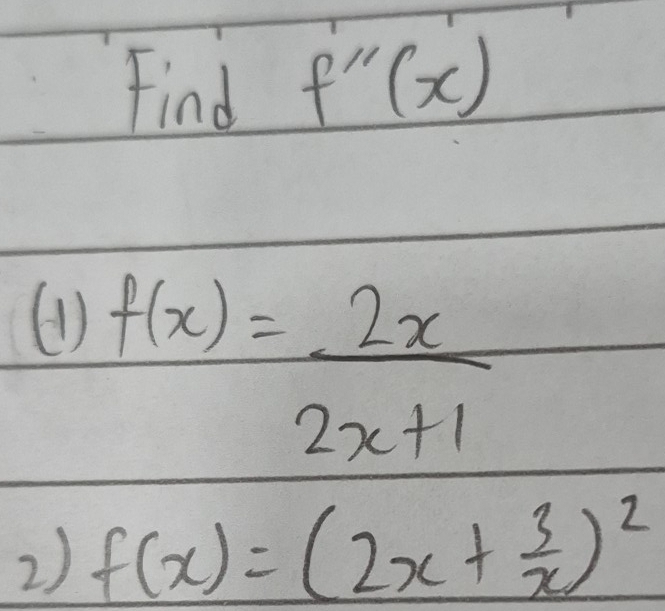 Find f''(x)
(1) f(x) = 2x / 2x+1
2) f(x) = (2x + 3/x)²